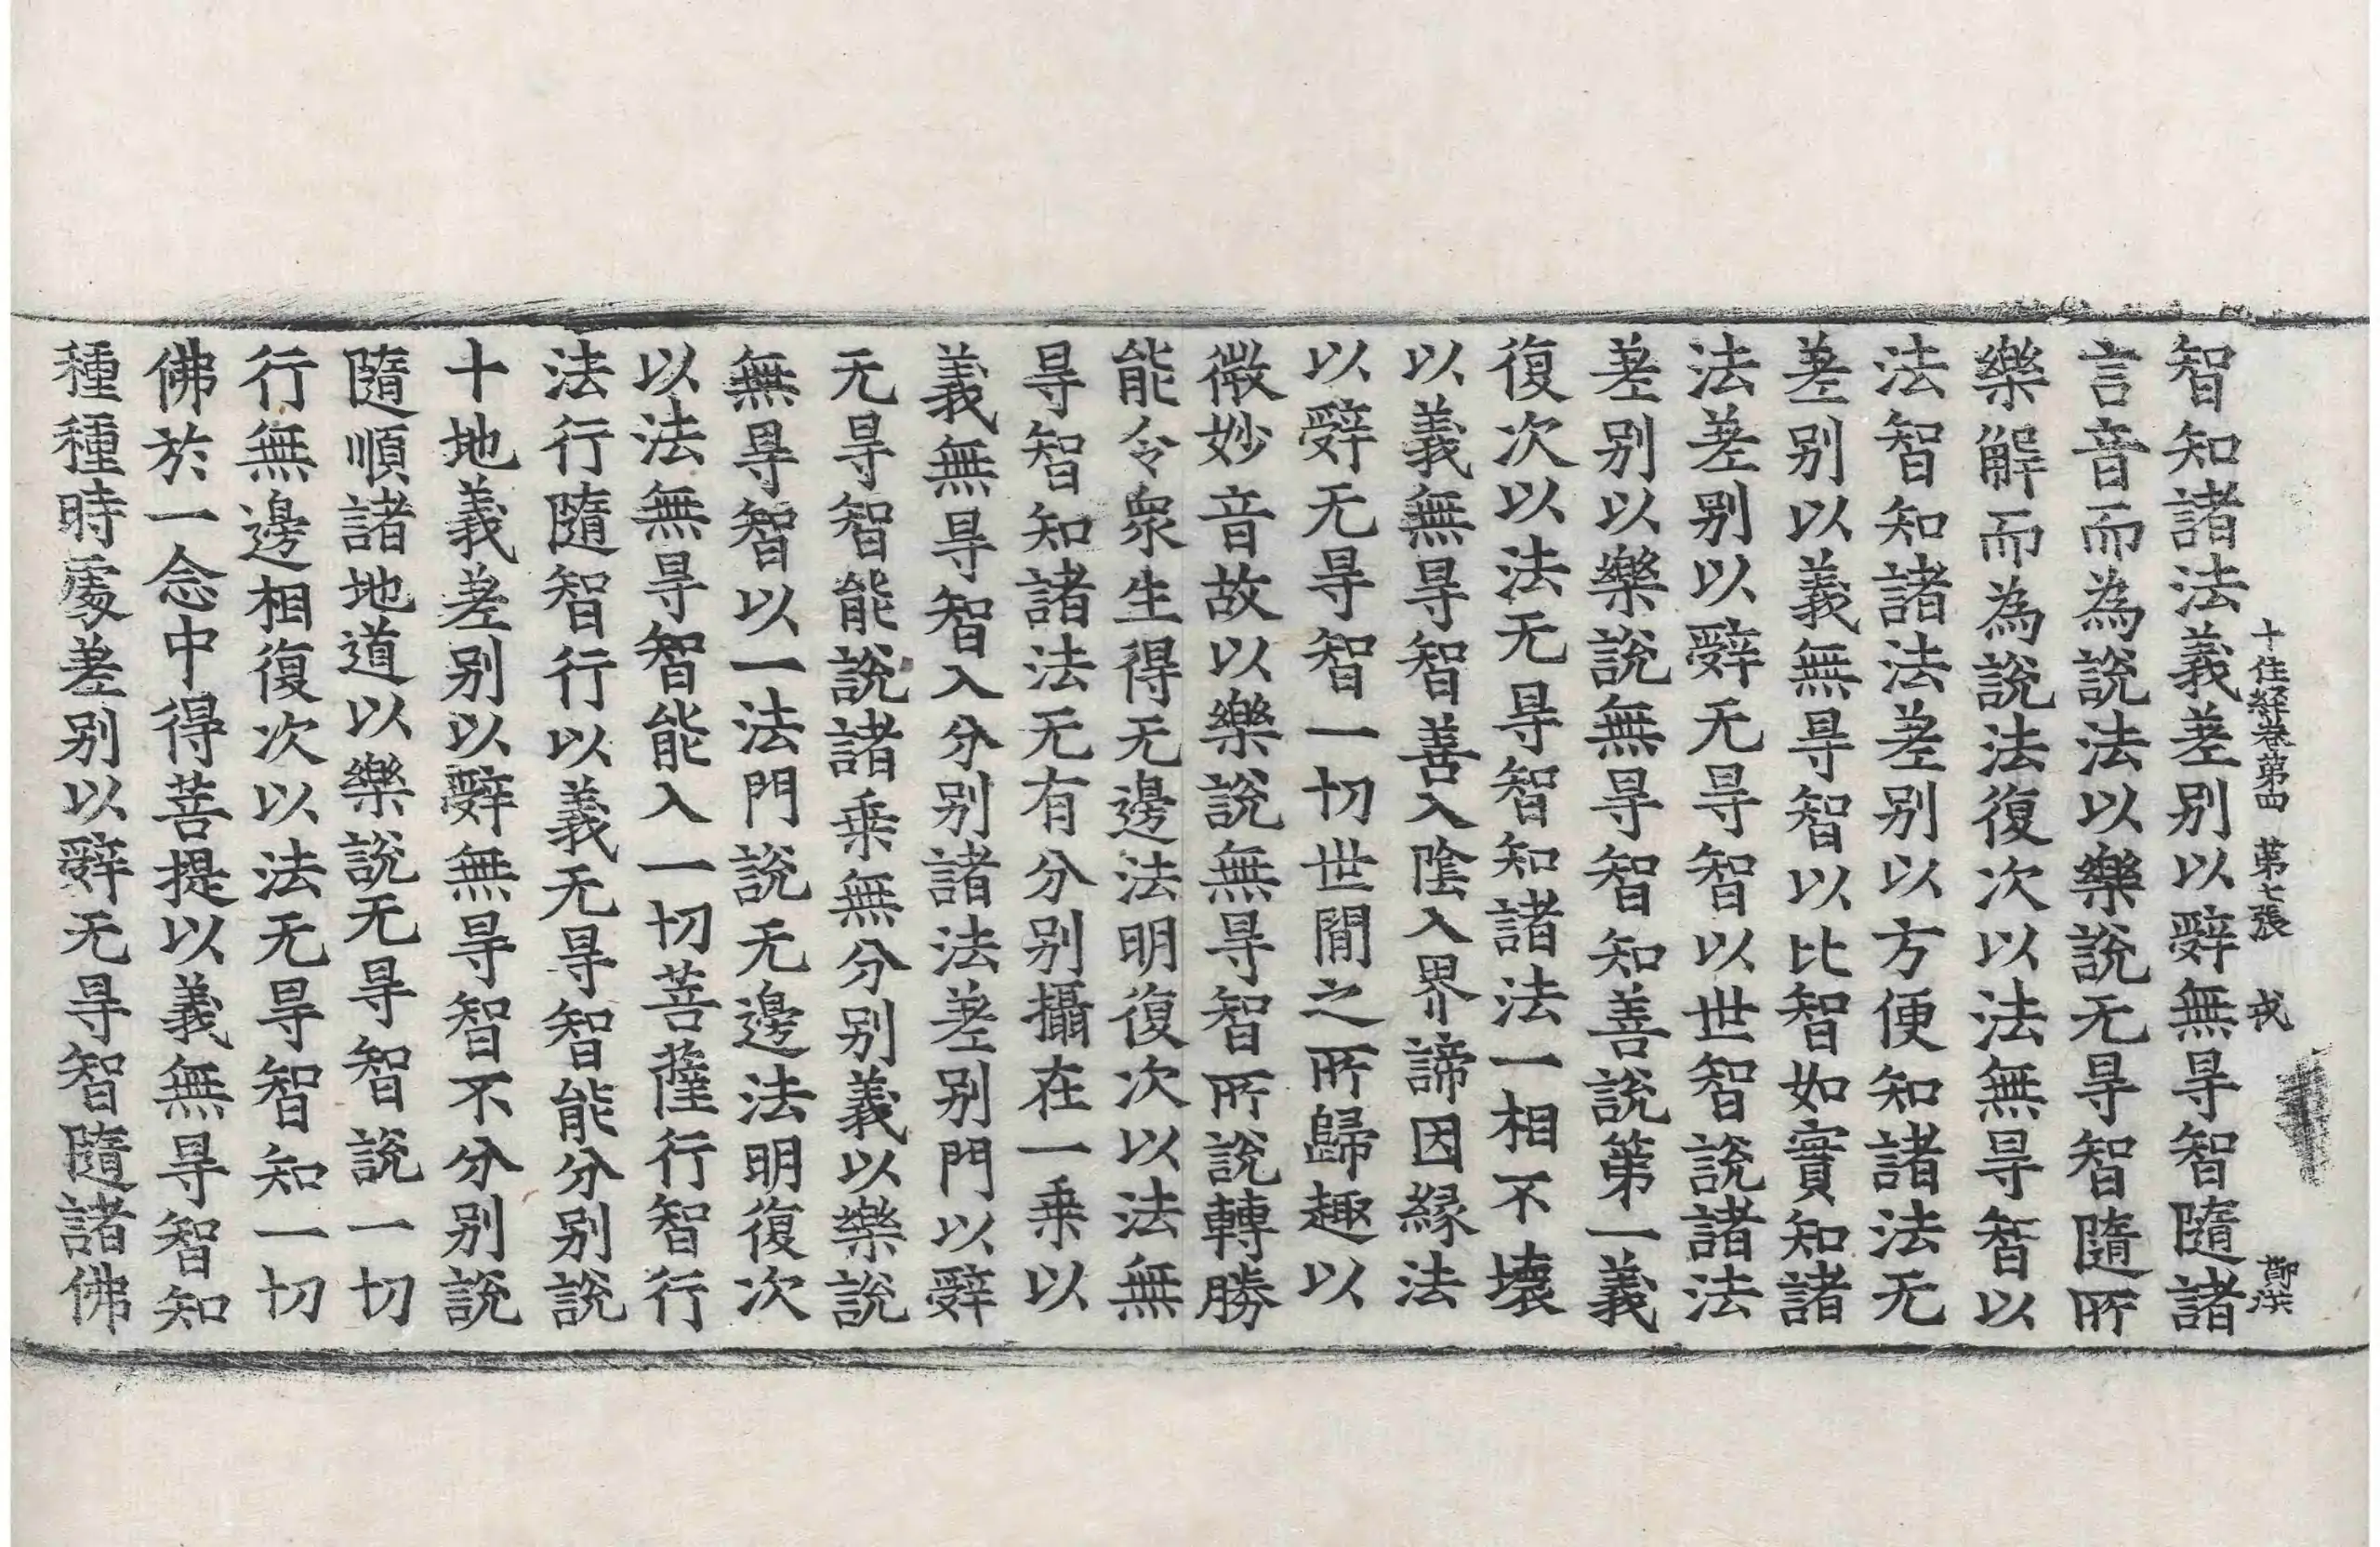 十住経巻第四　第七張　戎　鄭洪
智知諸法義差别以辭無㝵智隨諸
言音而為說法以樂說无㝵智隨所
樂解而為說法復次以法無㝵智以
法智知諸法差别以方便知諸法无
差别以義無㝵智以比智如實知諸
法差别以辭无㝵智以世智說諸法
差别以樂說無㝵智知善說第一義
復次以法无㝵智知諸法一相不壞
以義無㝵智善入陰入界諦因縁法
以辭无㝵智一切世間之所歸趣以
微妙音故以樂說無㝵智所說轉勝
能令衆生得无邊法明復次以法無
㝵智知諸法无有分别攝在一乗以
義無㝵智入分别諸法差别門以辭
无㝵智能說諸乗無分别義以樂說
無㝵智以一法門說无邊法明復次
以法無㝵智能入一切菩薩行智行
法行隨智行以義无㝵智能分别說
十地義差别以辭無㝵智不分别說
隨順諸地道以樂說无㝵智說一切
行無邊相復次以法无㝵智知一切
佛於一念中得菩提以義無㝵智知
種種時處差别以辭无㝵智隨諸佛